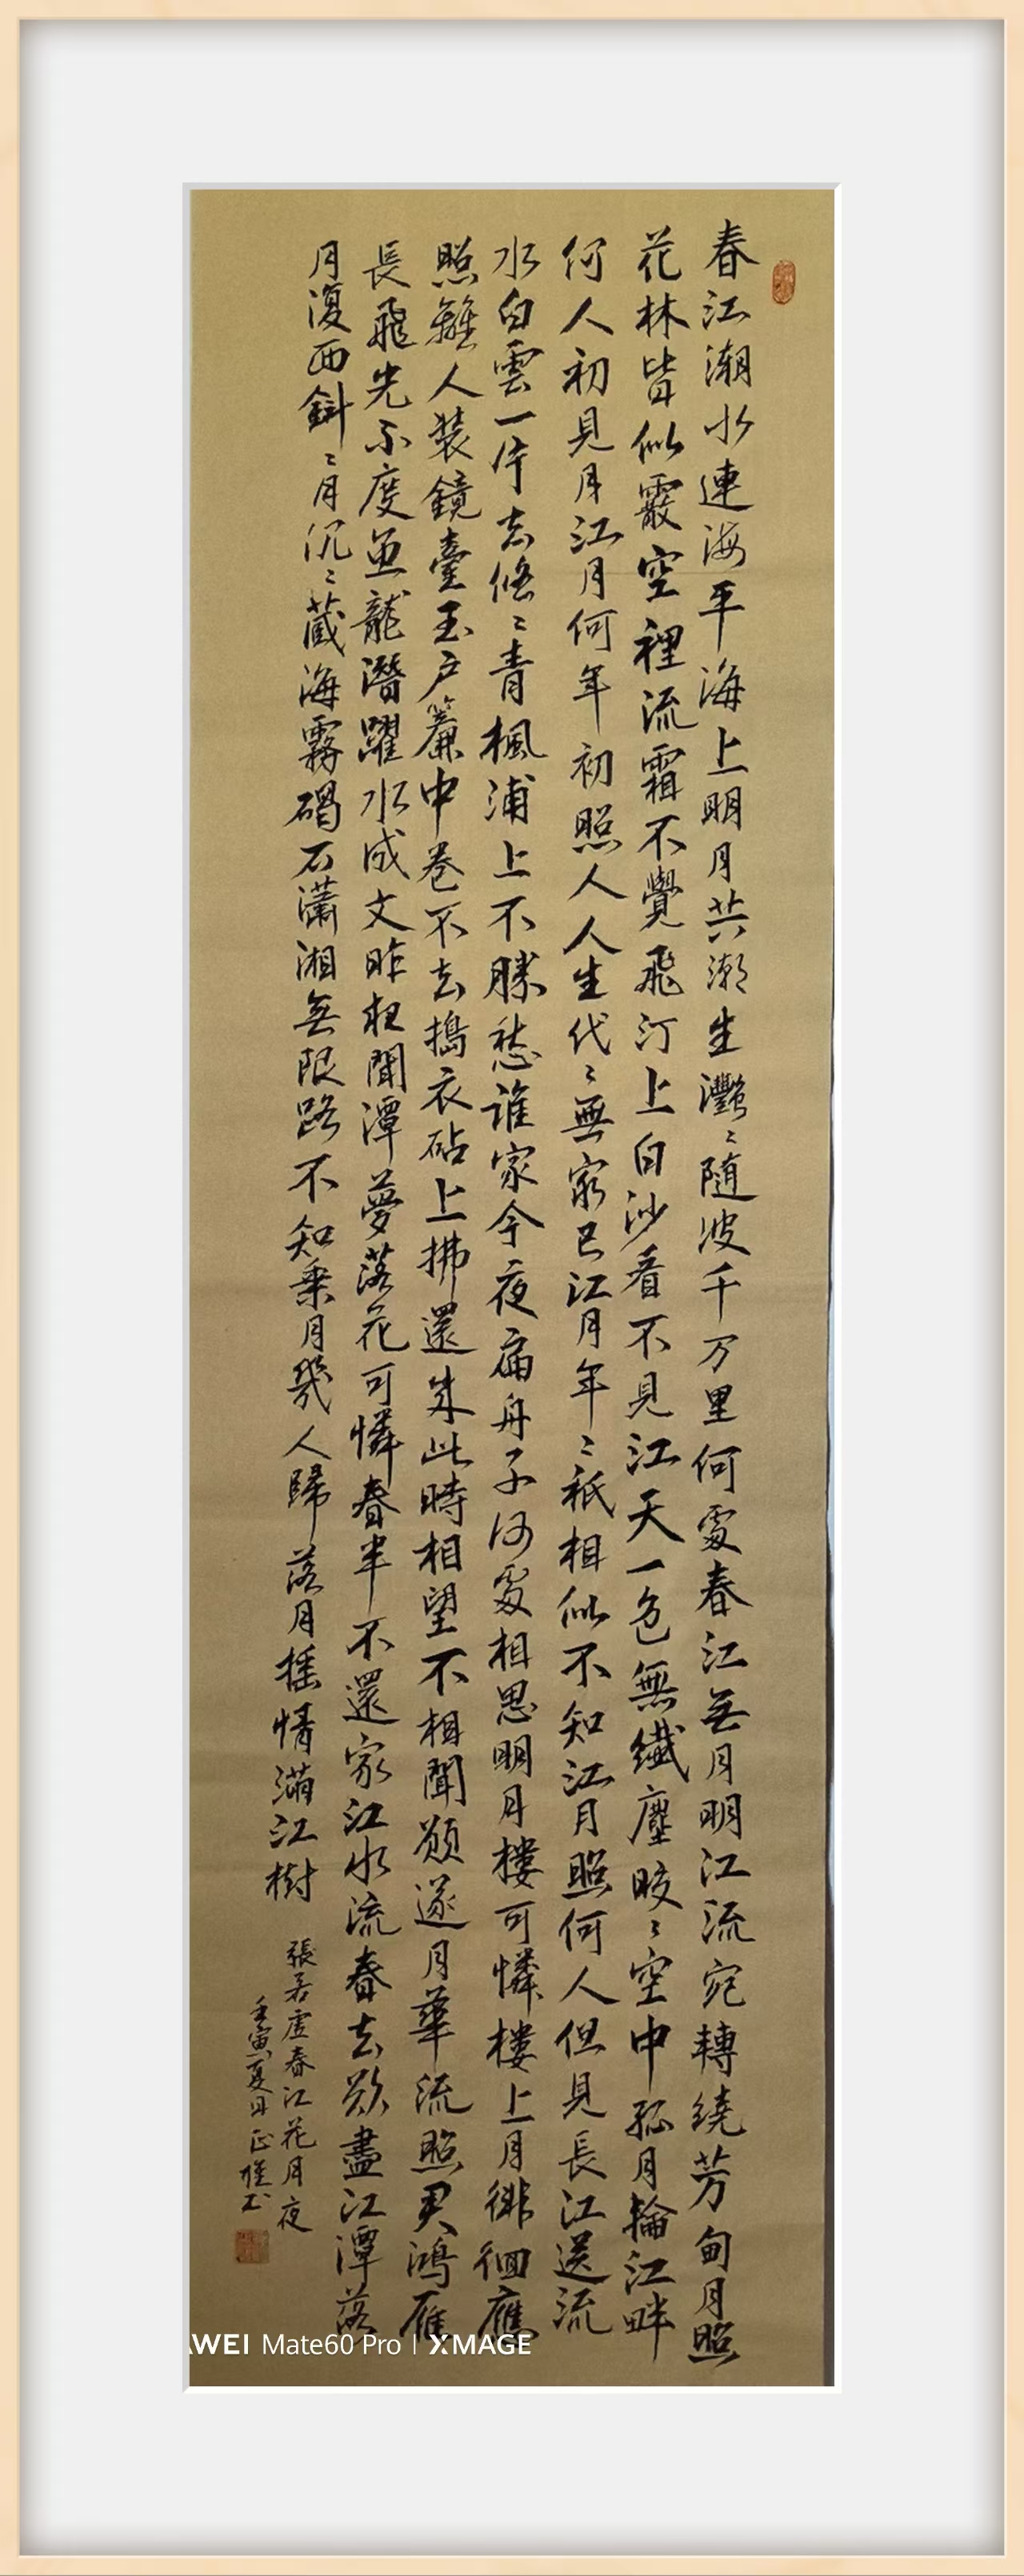 春江潮水連海平海上明月共潮生灩〻隨波千万里何處春江無月明江流宛轉繞芳甸月照
花林皆似霰空裡流霜不覺飛汀上白沙看不見江天一色無纖塵皎〻空中孤月輪江畔
何人初見月江月何年初照人人生代〻無窮已江月年〻祇相似不知江月照何人但見長江送流
水白雲一片去悠〻青楓浦上不勝愁誰家今夜扁舟子何處相思明月樓可憐樓上月徘徊應
照離人裝鏡臺玉戶簾中卷不去搗衣砧上拂還來此時相望不相聞願逐月華流照君鴻雁
長飛光不度魚龍潛躍水成文昨夜聞潭夢落花可憐春半不還家江水流春去欲盡江潭落
月復西斜〻月沉〻藏海霧碣石瀟湘無限路不知乘月幾人歸落月搖情滿江樹
張若虛春江花月夜
壬寅夏日正雄书
AWEI Mate60 Pro | XMAGE